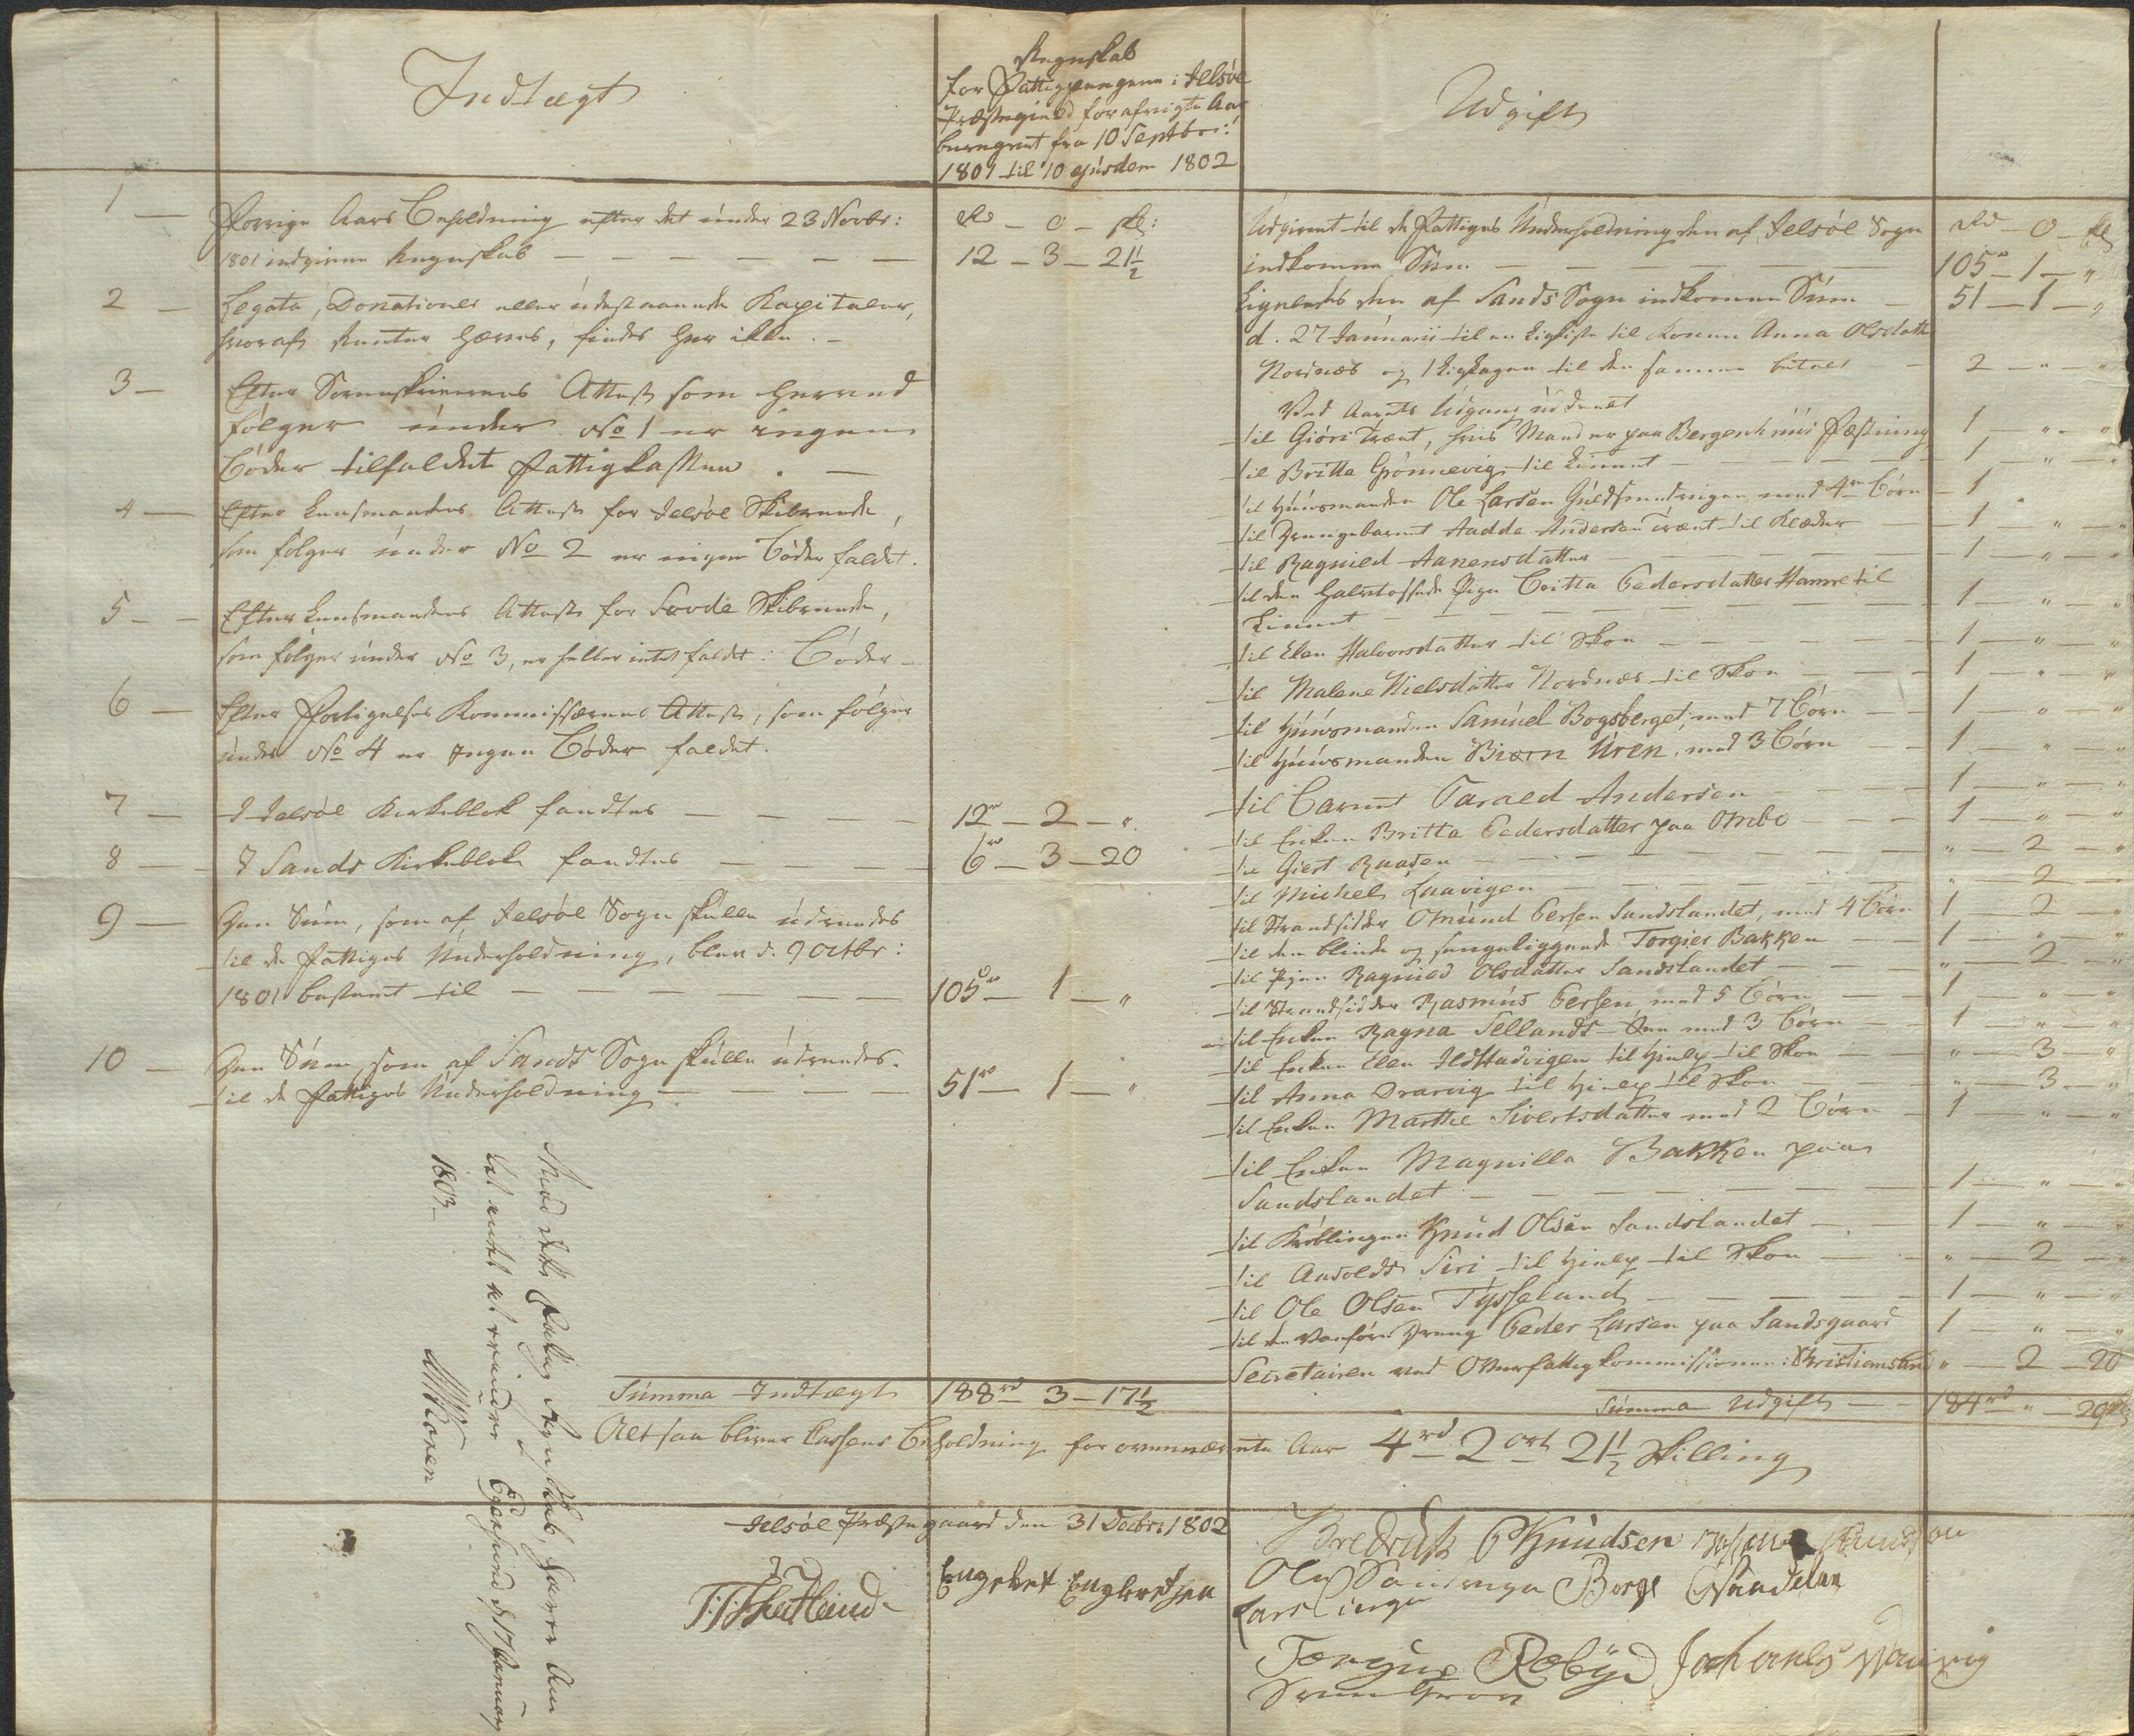 Indtægt
Regnskab
for Fattigpengene i Jelsøe
Præstegield for afvigte Aar
beregnet fra 10 Septbr:
1801 til 10 ejusdem 1802
Udgift
1 — Forrige Aars Beholdning efter det under 23 Novbr:
Rd – O – sk:
1801 indgivne Regnskab — 12 – 3 – 21½
2 — Legata, Donationer eller udestaaende Kapitaler,
hvoraf Renter hæves, findes her ikke. –
3 – Efter Sorenskriverens Attest som herved
følger under No 1 er ingen
Bøder tilfaldet Fattigkassen. —
4 — Efter Lensmandens Attest for Jelsøe Skibrede,
som følger under No 2 er ingen Bøder faldet.
5 — Efter Lensmandens Attest for Sovde Skibrede,
som følger under No 3, er heller intet faldet i Bøder –
6 – Efter Forligelses Kommissærernes Attest, som følger
under No 4 er Ingen Bøder faldet.
7 — I Jelsøe Kirkeblok fandtes — 12 rd – 2 – "
8 — I Sands Kirkeblok fandtes — 6 rd – 3 – 20
9 — Den Sum, som af Jelsøe Sogn skulle udredes
til de Fattiges Underholdning, blev d. 9 Octbr:
1801 bestemt til — 105 rd – 1 – "
10 — Den Sum, som af Sands Sogn skulle udredes
til de Fattiges Underholdning — 51 rd – 1 – "
Summa Indtægt 188 rd – 3 – 17½
Udgivet til de Fattiges Underholdning den af Jelsøe Sogn
Rd – O – sk
indkomne Sum — 105 – 1 – "
Ligeledes den af Sands Sogn indkomne Sum – 51 – 1 – "
d. 27 Januarii til en Ligkiste til Konen Anna Olsdatter
Nordnæs og 1 Liglagen til den samme betalt — 2 – " – "
Ved Aarets Udgang uddeelt
til Giøri Træet, hvis Mand er paa Bergenhuus Fæstning 1 – " – "
til Britta Grønnevig til Linnet — 1 – " – "
til Huusmanden Ole Larsen Guldsmedvigen med 4re Børn – 1 "
til Drengebarnet Aadde Andersen Træet til Klæder – 1 – " – "
til Ragnild Aanensdatter — 1 – " – "
til den halvtossede Pige Britta Pedersdatter Hamre til
Linnet — 1 – " – "
til Elen Halvorsdatter til Skoe — 1 – " – "
til Malene Nielsdatter Nordnæs til Skoe — 1 – " – "
til Huusmanden Samuel Bogsberget, med 7 Børn — 1 – " – "
til Huusmanden Biørn Uren, med 3 Børn — 1 – " – "
til Barnet Tarald Andersen — 1 – " – "
til Enken Britta Pedersdatter paa Ombo — 1 – " – "
til Giert Raaden — " – 2 – "
til Michel Laavigen — " – 2 – "
til Strandsidder Omund Persen Sandslandet, med 4 Børn 1 – 2 – "
til den blinde og sengeliggende Torgier Bakken — 1 – " – "
til Pigen Ragnild Olsdatter Sandslandet — " – 2 – "
til Strandsidder Rasmus Persen med 5 Børn — 1 – " – "
til Enken Ragna Sellands-Øen med 3 Børn — 1 " "
til Enken Elen Ildstadvigen til Hielp til Skoe — " – 3 – "
til Anna Drarvig til Hielp til Skoe — " – 3 – "
til Enken Marthe Sivertsdatter med 2 Børn — 1 " – "
til Enken Magnilla Bakken paa
Sandslandet — 1 – " – "
til Krøblingen Knud Olsen Sandslandet — 1 – " – "
til Siri til Hielp til Skoe — " – 2 – "
til Ole Olsen Tysseland — 1 – " – "
til den vanføre Dreng Peder Larsen paa Sandsgaard 1 – " – "
Secretairen ved Overfattigkommissionen i Christiansand " – 2 – 20
Summa Udgift — 184 rd – " – 20 sk
Altsaa bliver Cassens Beholdning for ovennævnte Aar 4 rd 2 ort 21½ Skilling
Jelsøe Præstegaard den 31 Decbr: 1802
Engebret Engbretsen
Knudsen
Ole
Borge
Lars
Johannes
Mod dette Fattig Regnskab, haves Am
tet intet at erindre d. 17 Januarij
1803 –